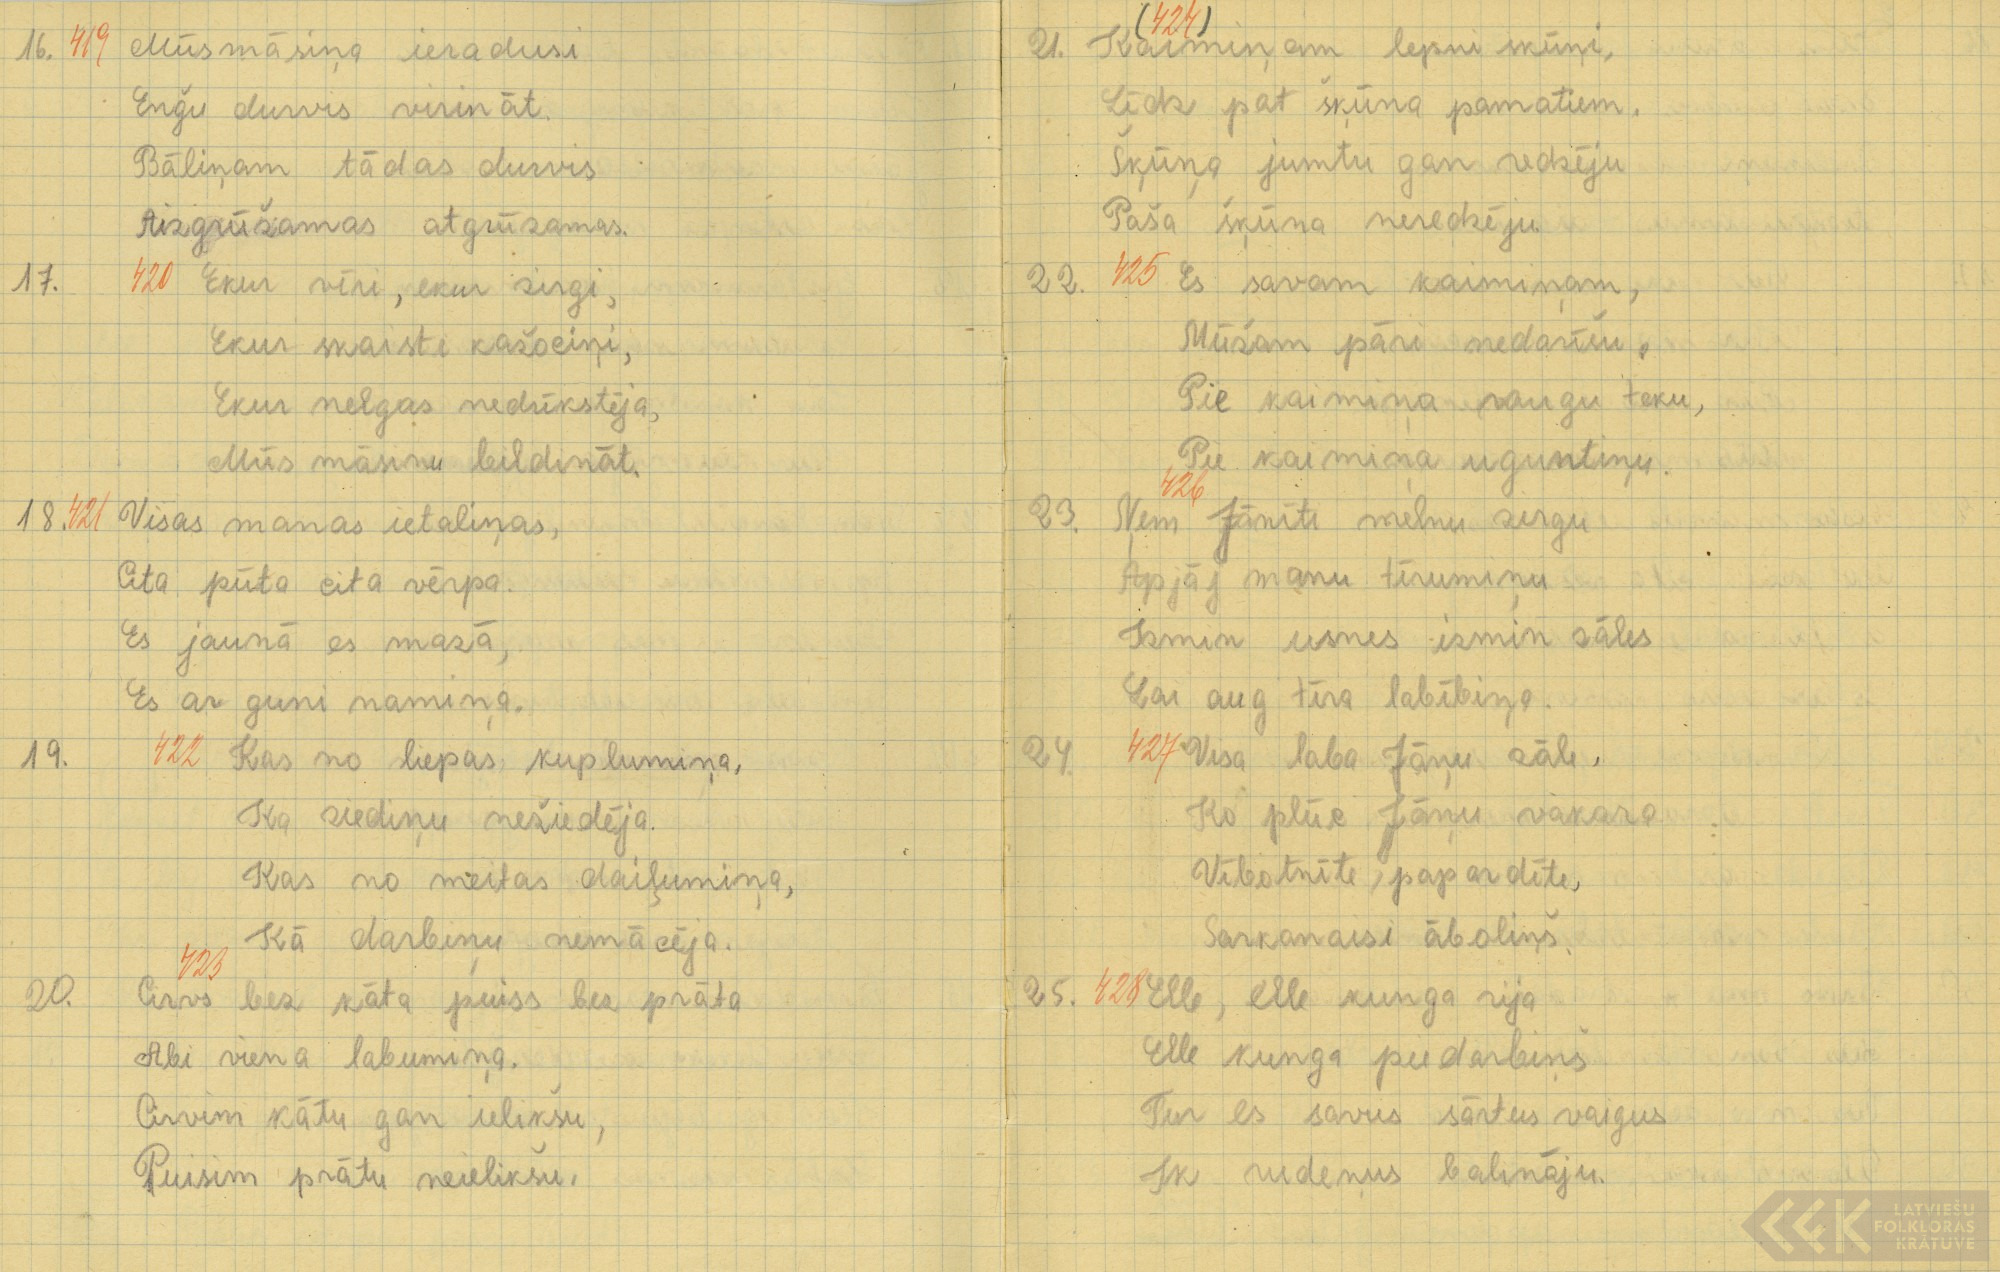 16. 419 Mūsmāsiņa ieradusi
Enģu durvis virināt.
Bāliņam tādas durvis
Aizgrūžamas atgrūzamas.
17. 420 Ekur vīri, ekur zirgi,
Ekur skaisti kažociņi,
Ekur nelgas nedrīkstēja,
Mūs māsiņu bildināt.
18. 421 Visas manas ietaliņas,
Cita pūta cita vērpa.
Es jaunā es mazā,
Es ar guni namiņa.
19. 422 Kas no liepas kuplumiņa,
Ka ziediņu nežiedēja.
Kas no meitas daiļumiņa,
Kā darbiņu nemācēja.
423
20. Cirvs bez kāta puiss bez prāta
Abi viena labumiņa.
Cirvim kātu gan ielikšu,
Puisim prātu neielikšu.
(424)
21. Kaimiņam lepni skūņi,
Līdz pat šķūņa pamatiem.
Šķūņa jumtu gan redzēju
Paša šķūņa neredzēju.
22. 425 Es savam kaimiņam,
Mūžam pāri nedarīšu.
Pie kaimiņa raugu teku,
Pie kaimiņa uguntiņu.
426
23. Ņem Jānīti melnu zirgu
Apjāj manu tīrumiņu
Izmin usnes izmin zāles
Lai aug tīra labībiņa.
24. 427 Visa laba Jāņu zāle,
Ko plūc Jāņu vakara
Vībotnīte, papardīte,
Sarkanaisi āboliņš.
25. 428 Elle, elle kunga rija
Elle kunga piedarbiņš
Tur es savus sārtus vaigus
Ik rudeņus balināju.
LATVIEŠU
FOLKLORAS
KRĀTUVE